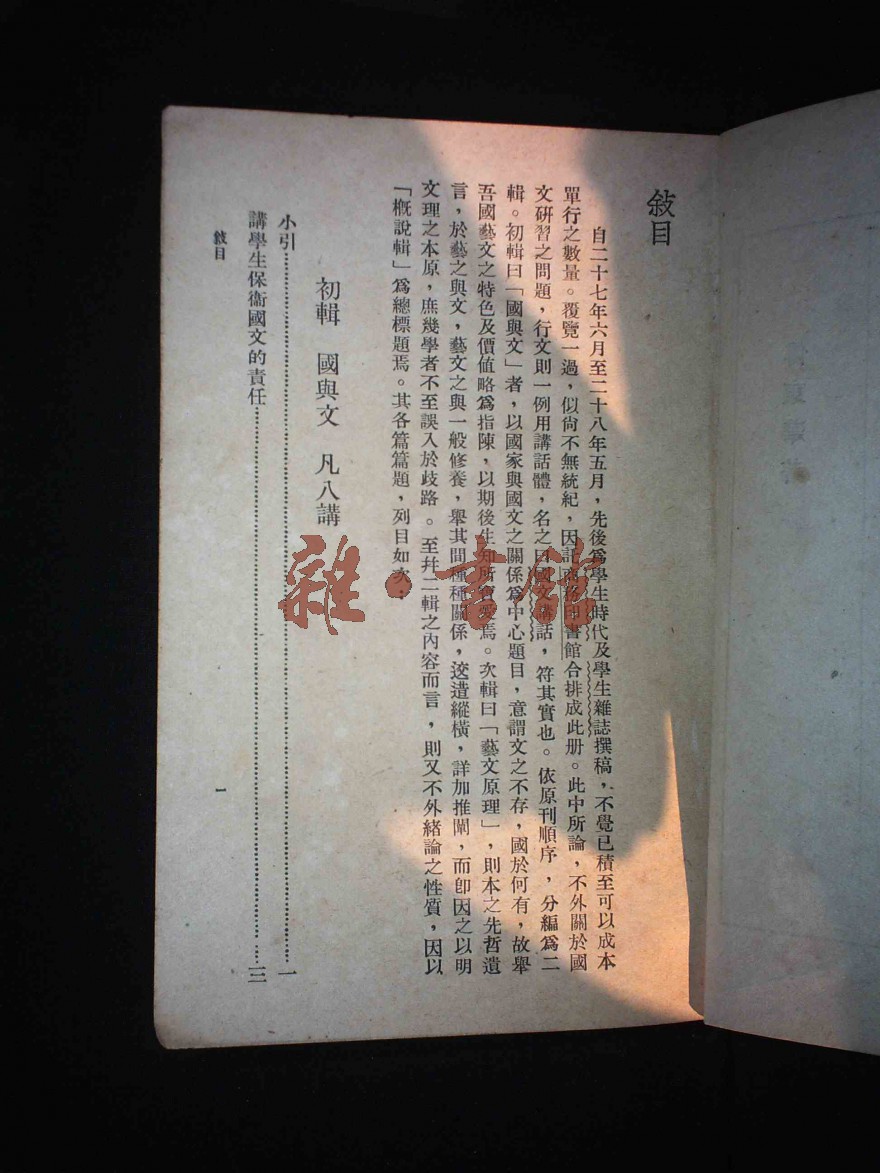 敍目
自二十七年六月至二十八年五月，先後爲學生時代及學生雜誌撰稿，不覺已積至可以成本
單行之數量。覆覽一過，似尙不無統紀，因託商務印書館合排成此册。此中所論，不外關於國
文硏習之問題，行文則一例用講話體，名之曰國文講話，符其實也。依原刊順序，分編爲二
輯。初輯曰「國與文」者，以國家與國文之關係爲中心題目，意謂文之不存，國於何有，故舉
吾國藝文之特色及價値略爲指陳，以期後生知所寶愛焉。次輯曰「藝文原理」，則本之先哲遺
言，於藝之與文，藝文之與一般修養，舉其間種種關係，逡遣縱橫，詳加推闡，而卽因之以明
文理之本原，庶幾學者不至誤入於歧路。至幷二輯之內容而言，則又不外緒論之性質，因以
「槪說輯」爲總標題焉。其各篇篇題，列目如次：
初輯　國與文　凡八講
小引……………………………………………………一
講學生保衞國文的責任……………………………………三
敍目
一
雜·書館